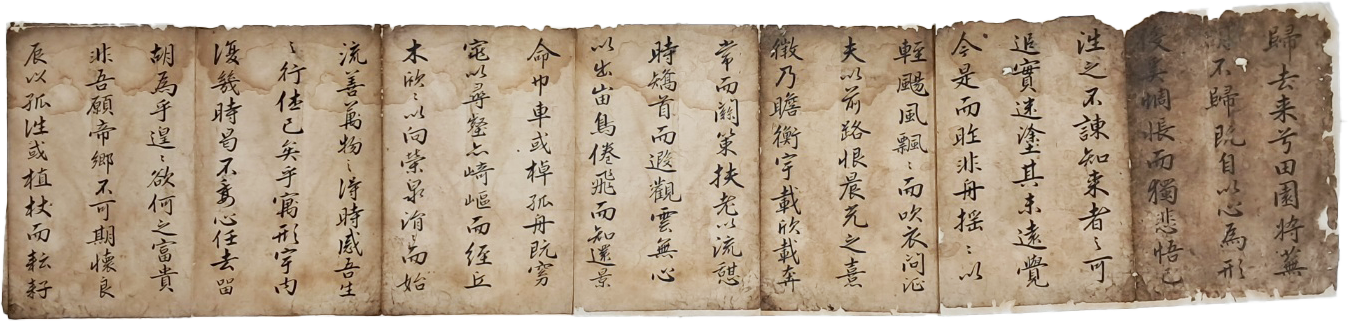 歸去来兮田園將蕪
胡不歸既自以心為形
役奚惆悵而獨悲悟已
往之不諫知来者〻可
追實迷塗其未遠覺
今是而昨非舟摇〻以
輕颺風飄〻而吹衣問征
夫以前路恨晨光之熹
微乃瞻衡宇載欣載奔
常而關策扶老以流憩
時矯首而遐觀雲無心
以出岫鳥倦飛而知還景
命巾車或棹孤舟既窈
窕以尋壑亦崎嶇而經丘
木欣〻以向榮泉涓〻而始
流善萬物〻得時感吾生
〻行休已矣乎寓形宇内
復幾時曷不委心任去留
胡為乎遑〻欲何之富貴
非吾願帝鄉不可期懷良
辰以孤往或植杖而耘耔